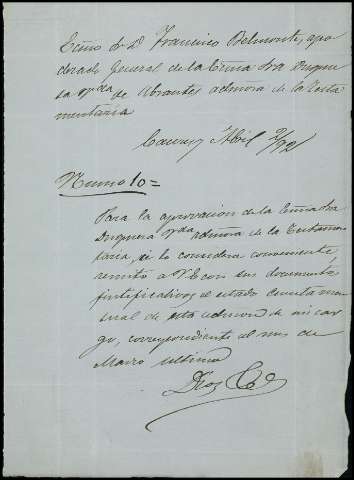 Ecmo Sr D. Francisco Belmonte, apo
derado General de la Ecma Sra Duque
sa vda de Abrantes admora de la testa
mentaria
Abril 2/92
Numo 10 =
Para la aprovacion de la Ecma Sra
Duquesa vda admora de la testamen
taria, si lo considera conveniente,
remito a V.E con sus documentos
justificativos el estado cuenta men
sual de esta admon de mi car
go, correspondiente al mes de
Marzo ultimo
Dios